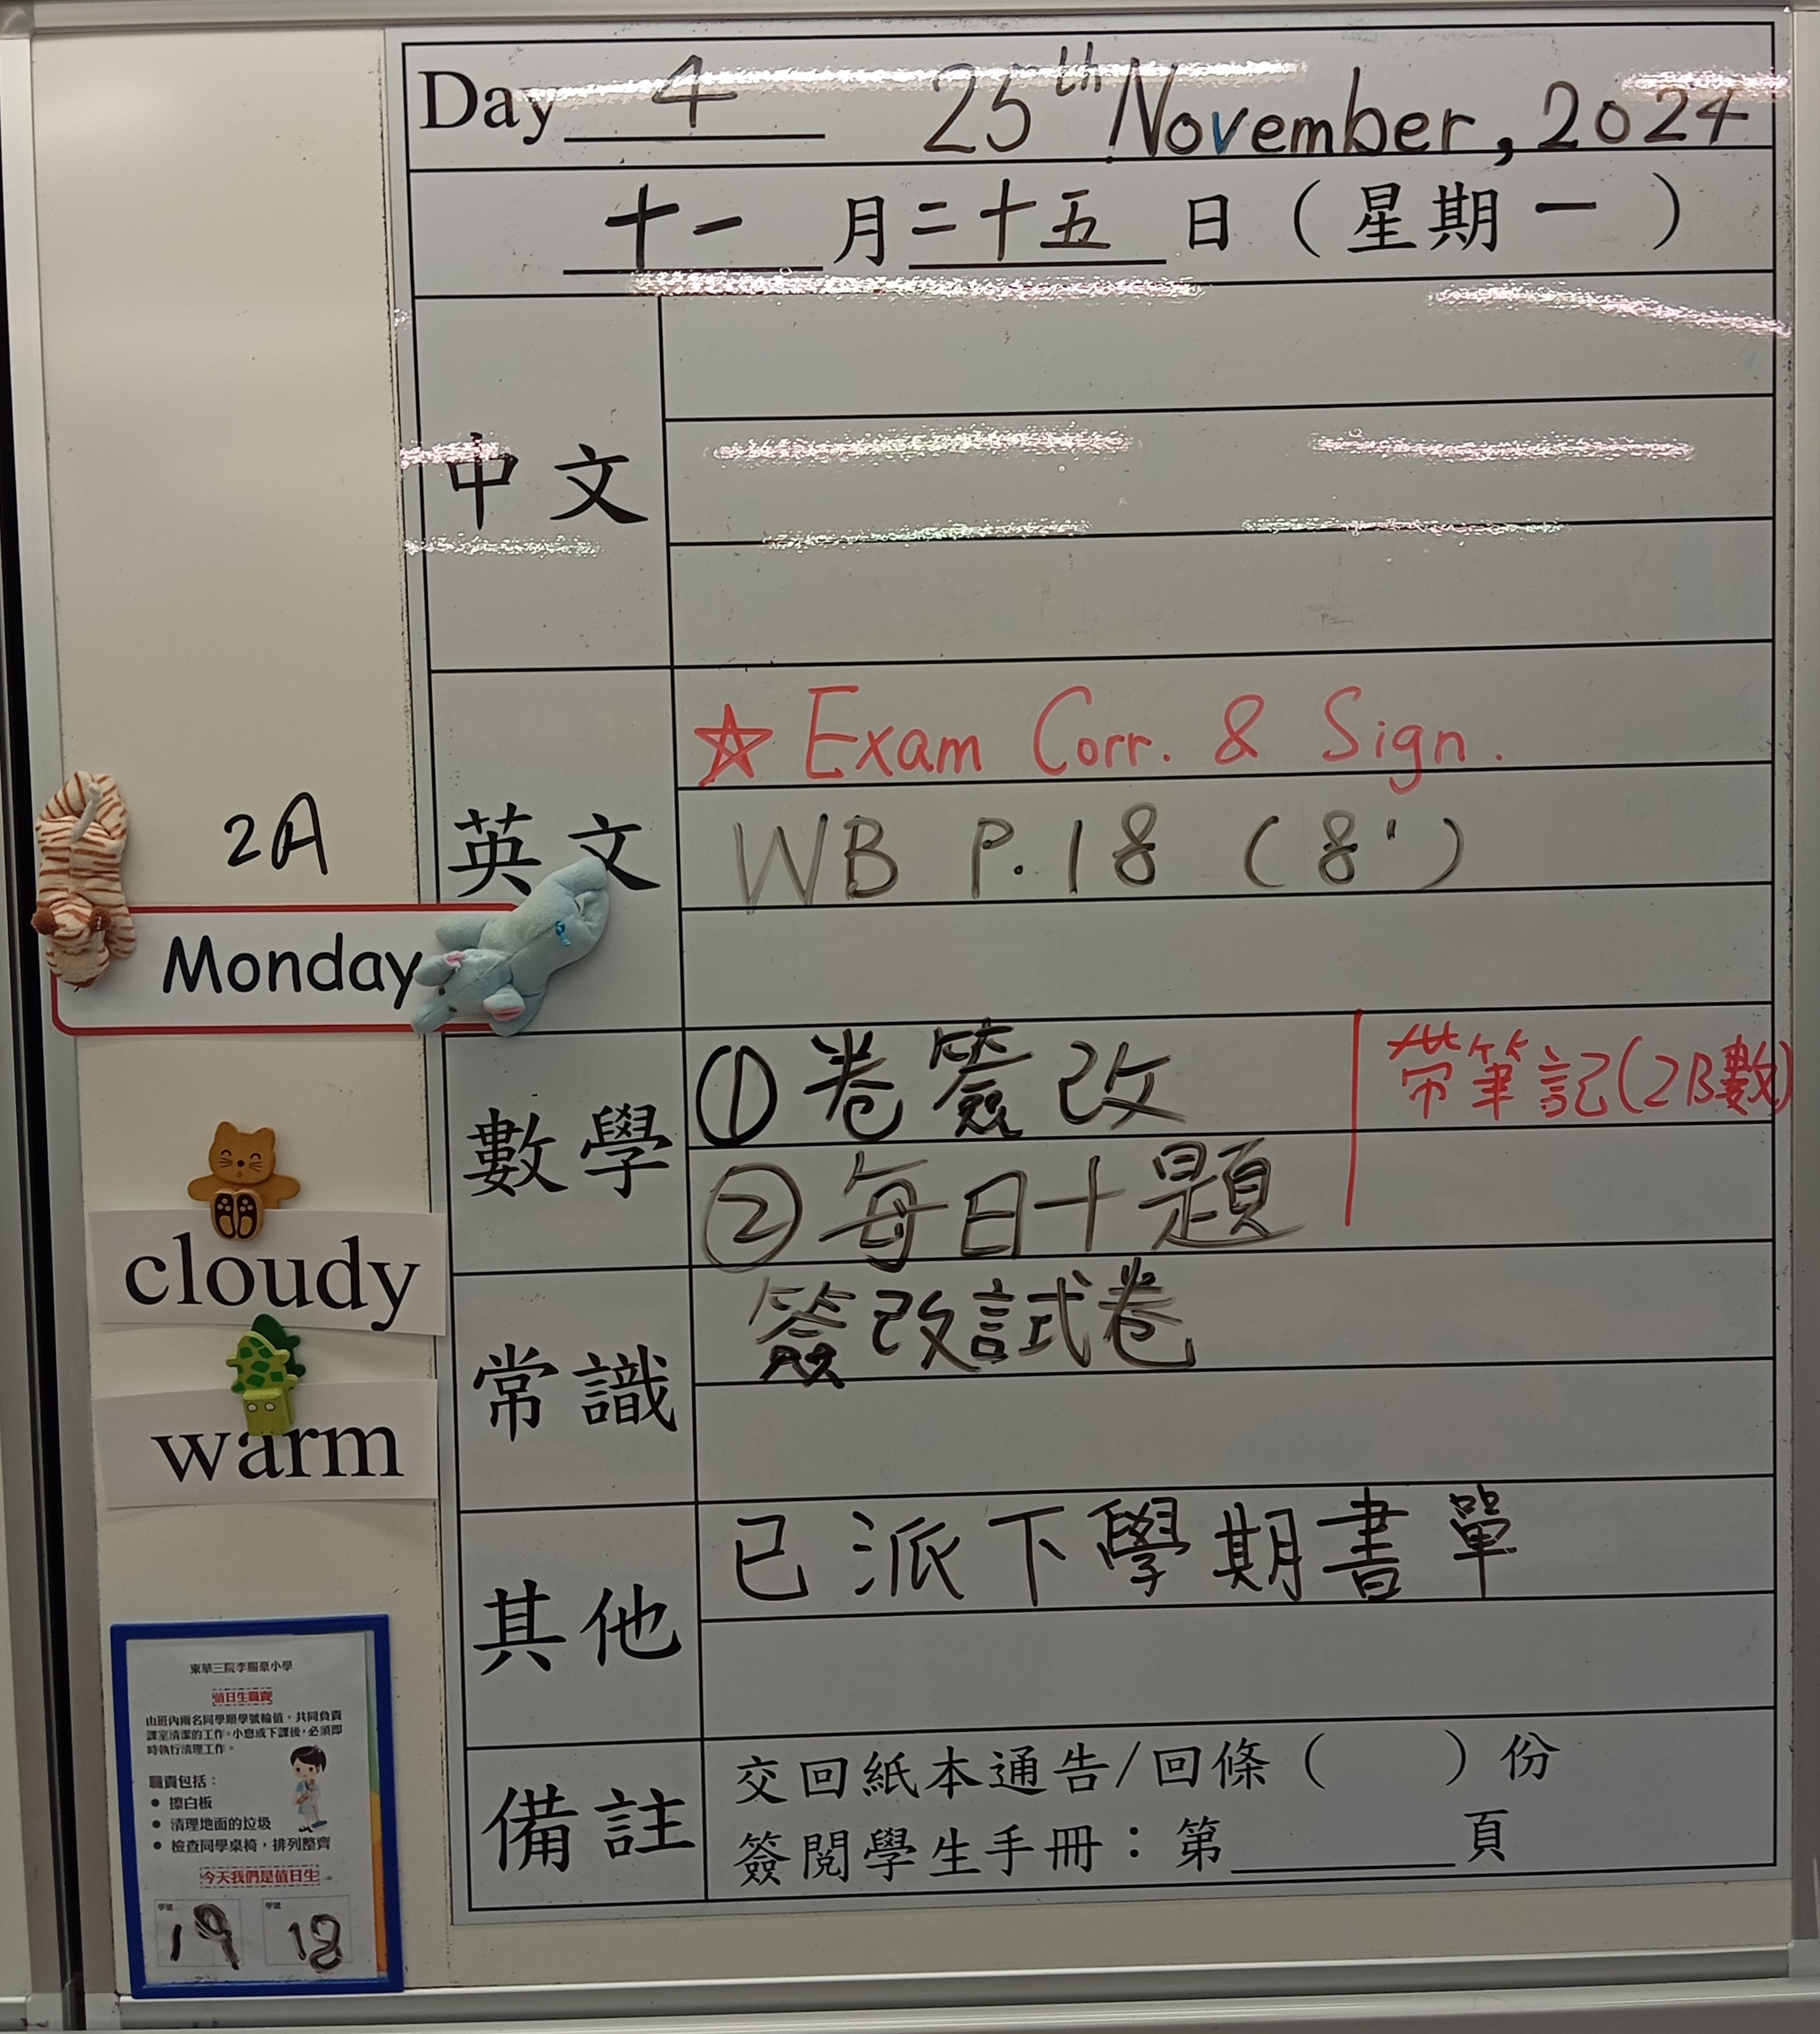 Day 4 25th November, 2024
十一月二十五日（星期一）
中文
英文
☆ Exam Corr. & Sign.
WB P.18 (8')
2A
Monday
數學
① 卷簽改
帶筆記(2B數)
② 每日十題
cloudy
warm
常識
簽改試卷
其他
已派下學期書單
備註
交回紙本通告/回條（ ）份
簽閱學生手冊：第______頁
東華三院李賜豪小學
值日生職責
由班內兩名同學順學號輪值，共同負責
課室清潔的工作。小息或下課後，必須即
時執行清理工作。
職責包括：
• 擦白板
• 清理地面的垃圾
• 檢查同學桌椅，排列整齊
今天我們是值日生。
學號 學號
19 18